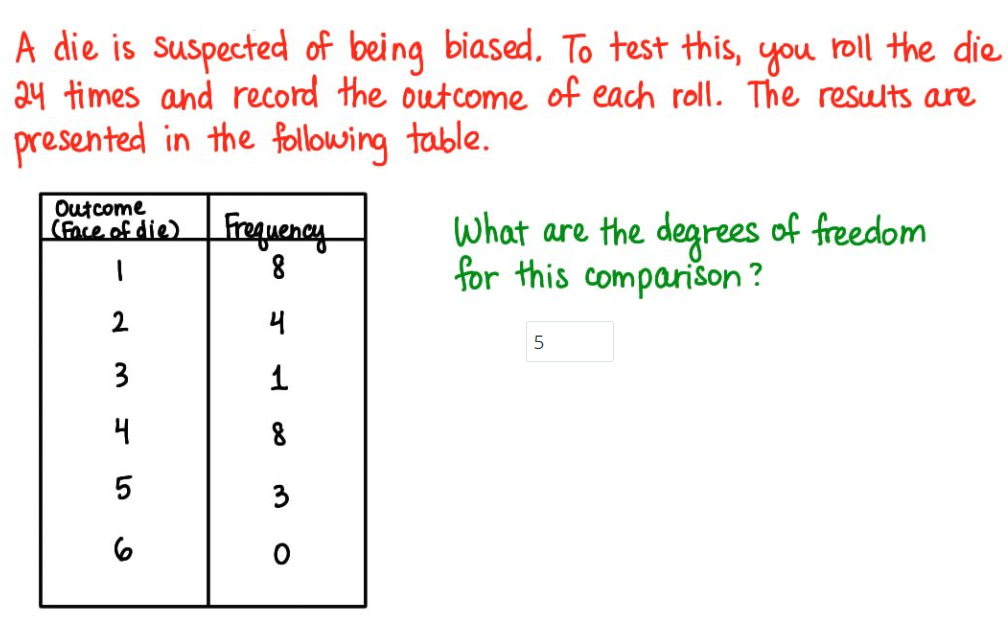 A die is suspected of being biased. To test this, you roll the die
24 times and record the outcome of each roll. The results are
presented in the following table.
Outcome
(Face of die)
Frequency
1 8
2 4
3 1
4 8
5 3
6 0
What are the degrees of freedom
for this comparison?
5